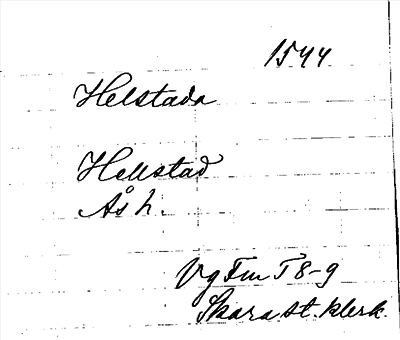 1544
Helstada
Hellstad
Ås h.
Vg Fm T 8-9
Skara st. klerk.